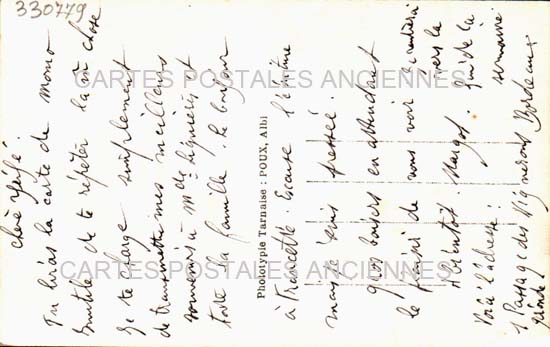 330779
Chère Zézé.
Tu liras la carte de Momo
Inutile de te répéter la m chose
Je te charge simplement
de transmettre mes meilleurs
souvenirs à Melle Liguières et
toute la famille. Le bonjour
Phototypie Tarnaise : POUX, Albi
à Francette. Excuse l'écriture
mais je suis pressée.
gros baisers en attendant
le plaisir de vous voir
vers la fin de la
semaine.
A bientôt Margot.
Voici l'adresse :
1 Passage des Vignerons Bordeaux
Gironde
CARTES POSTALES ANCIENNES
CARTES POSTALES ANCIENNES